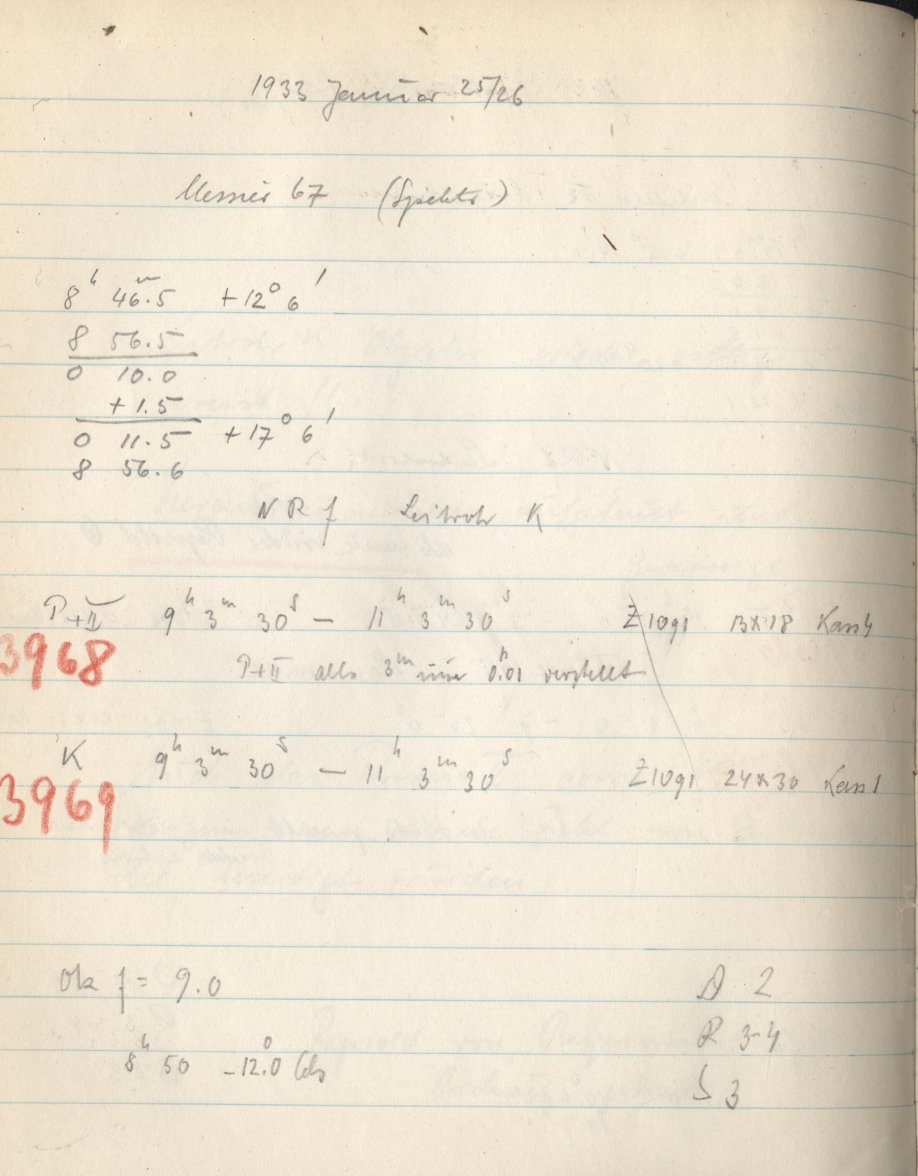 1933 Januar 25/26
Messier 67 (Spektr)
8ʰ 46.5ᵐ +12° 6'
8 56.5
0 10.0
+ 1.5
0 11.5 +17° 6'
8 56.6
N R f Leitrohr K
P+II 9ʰ 3ᵐ 30ˢ — 11ʰ 3ᵐ 30ˢ Z 1091 13x18 Kass 4
3968
P+II alle 3ᵐ um 0.01 verstellt
K 9ʰ 3ᵐ 30ˢ — 11ʰ 3ᵐ 30ˢ Z 1091 24x30 Kass 1
3969
Ok f = 9.0
D 2
R 3-4
8ʰ 50 -12.0°
S 3